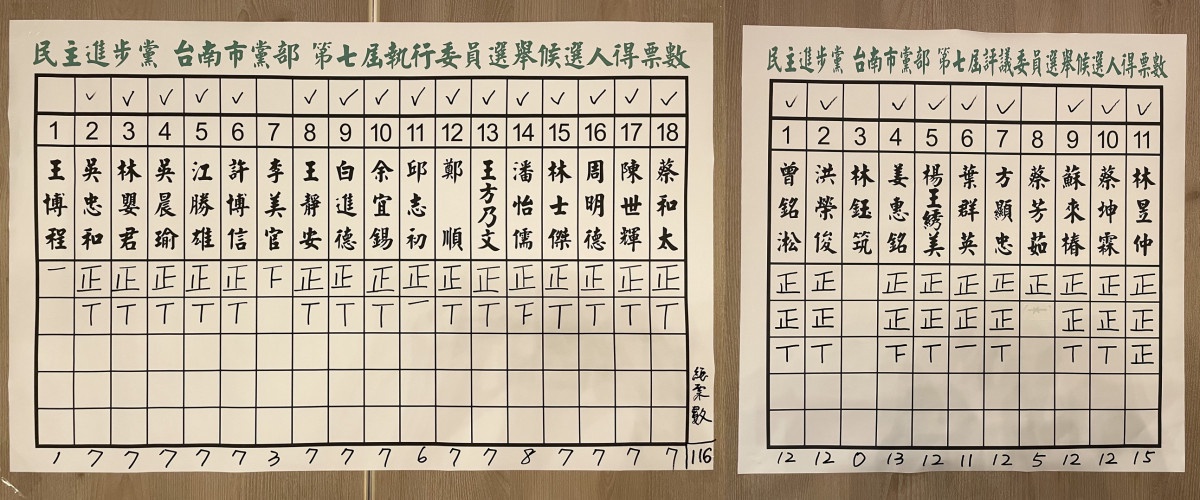 民主進步黨 台南市黨部 第七屆執行委員選舉候選人得票數
✓ ✓ ✓ ✓ ✓ ✓ ✓ ✓ ✓ ✓ ✓ ✓ ✓ ✓ ✓ ✓
1 2 3 4 5 6 7 8 9 10 11 12 13 14 15 16 17 18
王博程 吳忠和 林嬰君 吳晨瑜 江勝雄 許博信 李美官 王靜安 白進德 余宜錫 邱志初 鄭順 王方乃文 潘怡儒 林士傑 周明德 陳世輝 蔡和太
一 正 正 正 正 正 下 正 正 正 正 正 正 正 正 正 正 正
丅 丅 丅 丅 丅 丅 丅 丅 一 丅 丅 下 丅 丅 丅 丅
總票數
1 7 7 7 7 7 3 7 7 7 6 7 7 8 7 7 7 7 116
民主進步黨 台南市黨部 第七屆評議委員選舉候選人得票數
✓ ✓ ✓ ✓ ✓ ✓ ✓ ✓ ✓
1 2 3 4 5 6 7 8 9 10 11
曾銘淞 洪榮俊 林鈺筑 姜惠銘 楊王綉美 葉群英 方顯忠 蔡芳茹 蘇來椿 蔡坤霖 林昱仲
正 正 正 正 正 正 正 正 正 正
正 正 正 正 正 正 正 正 正
丅 丅 下 丅 一 丅 丅 丅 正
12 12 0 13 12 11 12 5 12 12 15